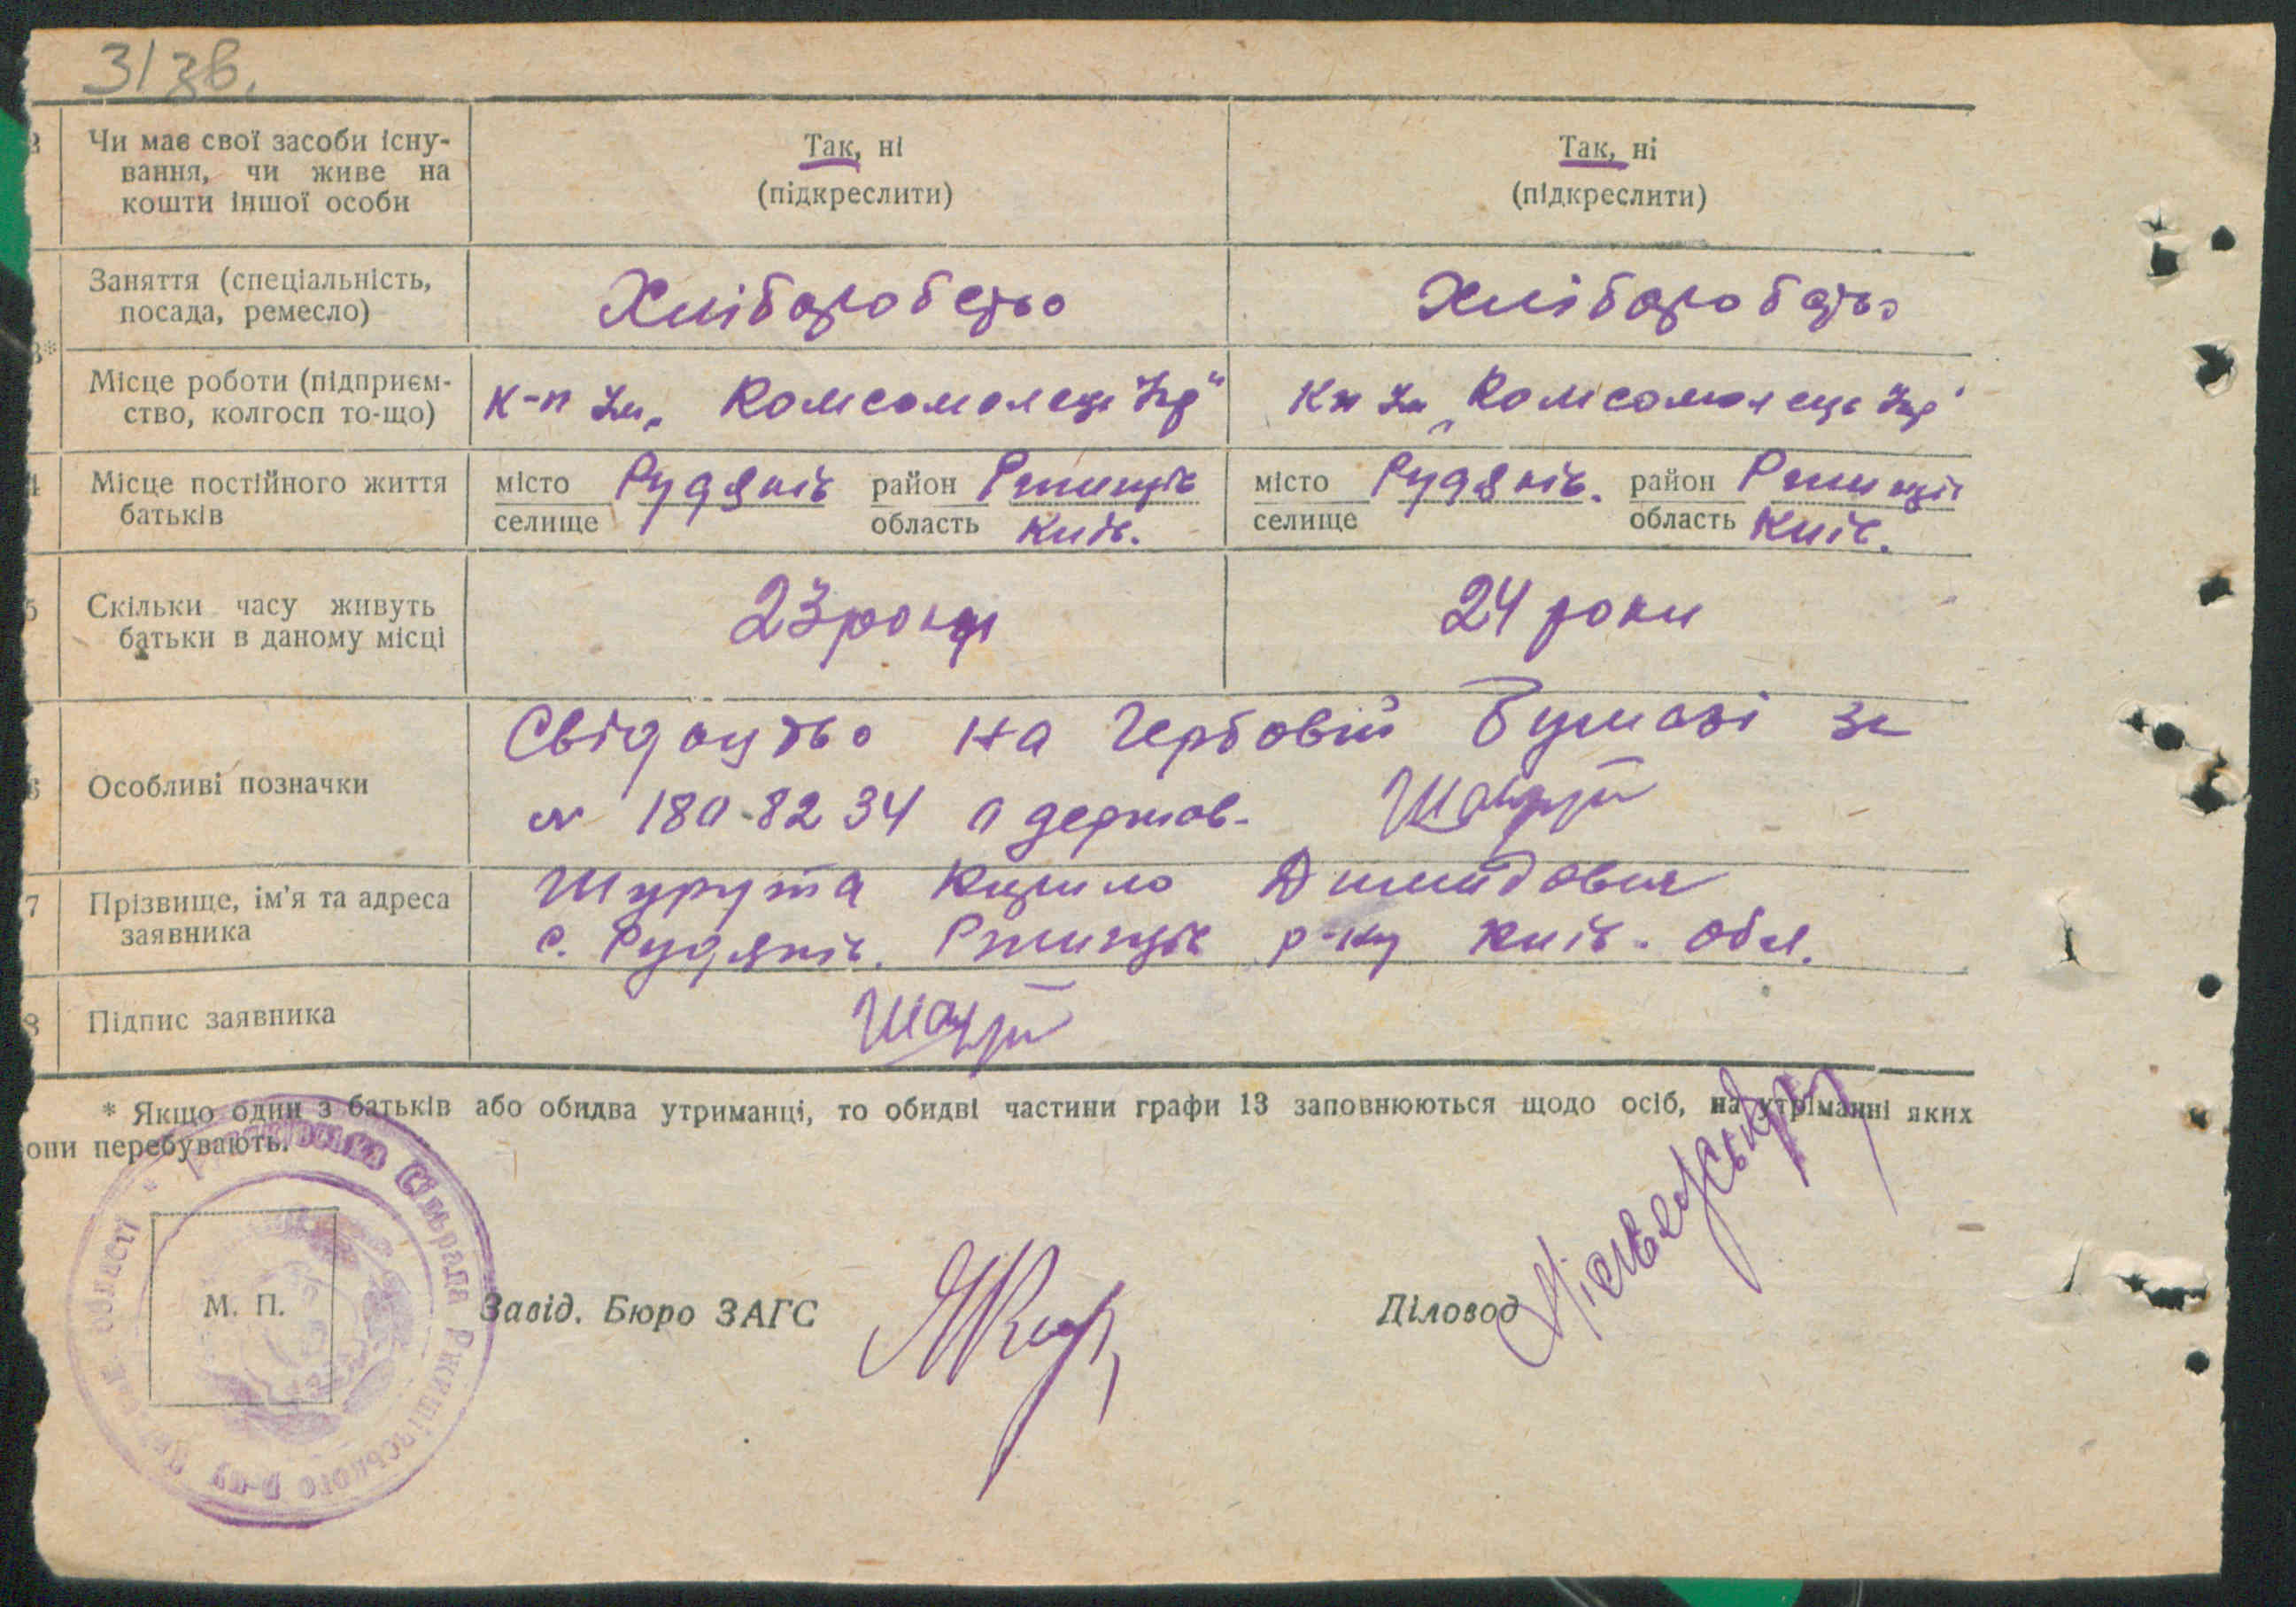 31 зв.
Чи має свої засоби існу-
вання, чи живе на
кошти іншої особи
Так, ні
(підкреслити)
Так, ні
(підкреслити)
Заняття (спеціальність,
посада, ремесло)
Хліборобство
Хліборобство
3*
Місце роботи (підприєм-
ство, колгосп то-що)
к-п Ім. „Комсомолець
Ім „Комсомолець
4
Місце постійного життя
батьків
місто Рудяків район Ржищів
селище область Київ.
місто Рудяків. район Ржищів
селище область Київ.
5
Скільки часу живуть
батьки в даному місці
23 роки
24 роки
6
Особливі позначки
Свідоцтво на Гербовій Бумазі за
№ 180-8234 одержав.
7
Прізвище, ім'я та адреса
заявника
Шурута Кирило
с. Рудяків. Ржищів р-ну Київ. обл.
8
Підпис заявника
* Якщо один з батьків або обидва утриманці, то обидві частини графи 13 заповнюються щодо осіб, на утриманні яких
они перебувають.
Сільрада Ржищівського р-ну області
М. П.
Завід. Бюро ЗАГС
Діловод